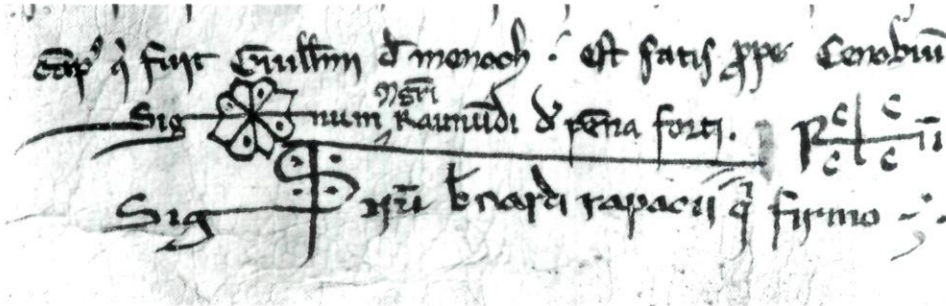 camp⁹ q̄ fuit Guillmi d̄ menoch · est satis ꝓpe Cenobiū
Sig num mgr̄i Raimūdi d̄ pēna forti.
Sig nū b̄nardi rapacii q̄ firmo